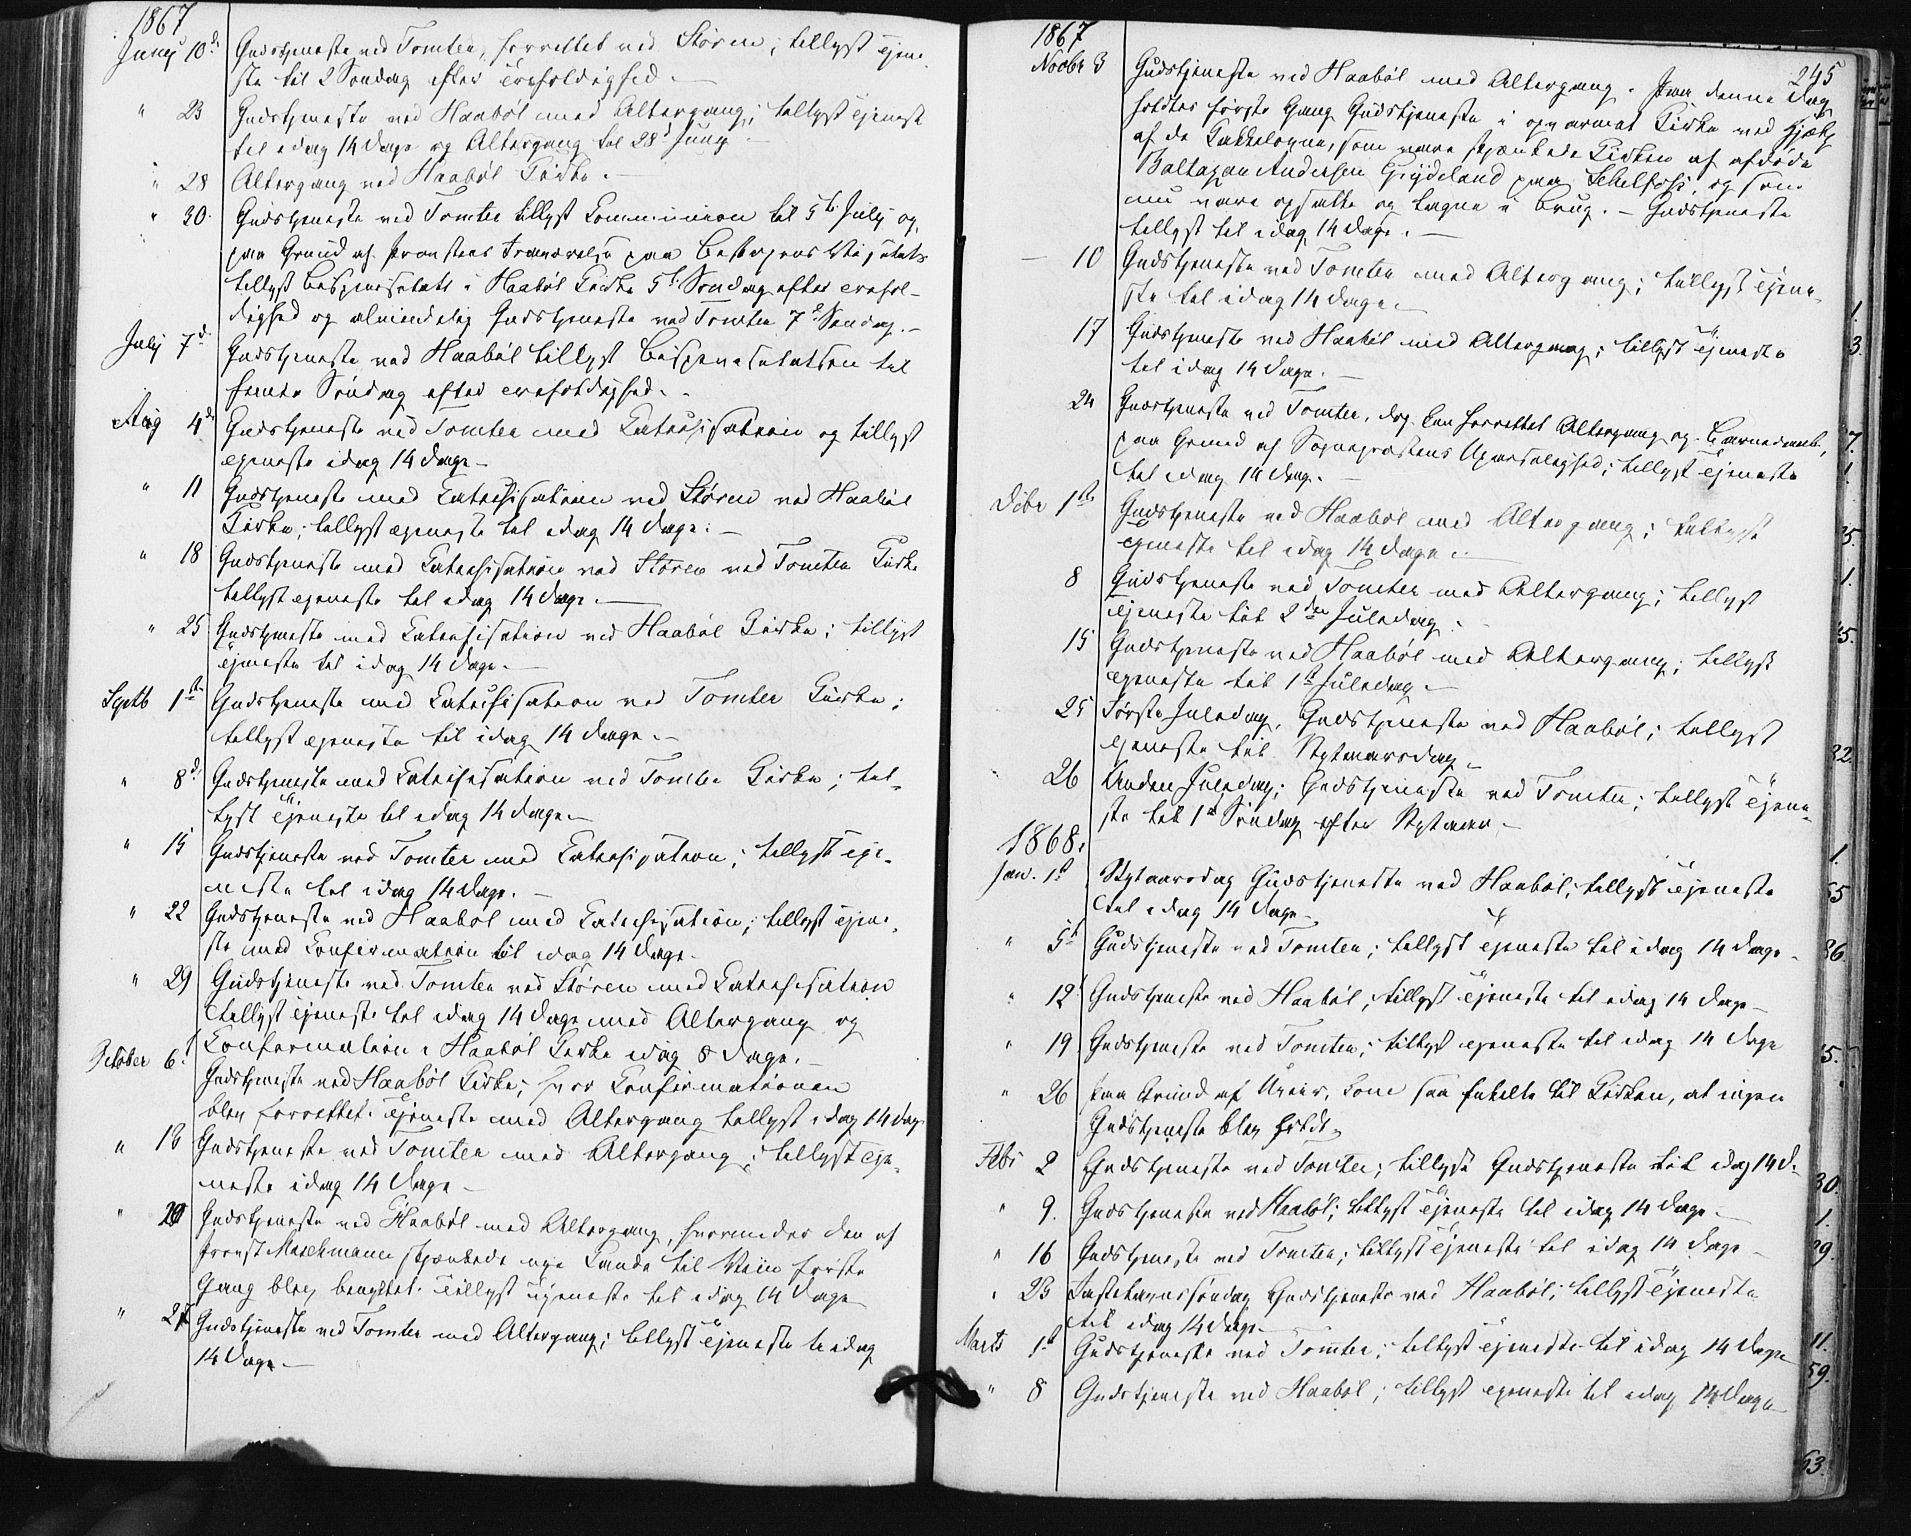 1867
Juny 10d. Gudstjeneste ved Tomter, forrettet ved Støren; tillyst Tjene-
ste til 2 Søndag efter Trefoldighed.
" 23 Gudstjeneste ved Haabøl med Altergang; tillyst Tjeneste
til idag 14 Dage og Altergang til 28d Juny
" 28 Altergang ved Haabøl Kirke.
" 30. Gudstjeneste ved Tomter tillyst Communion til 5te July og,
paa Grund af Provstens Fraværelse paa Bispens Visitats
tillyst Bispevisitats i Haabøl Kirke 5te Søndag efter Trefol-
dighed og almindelig Gudstjeneste ved Tomter 7d Søndag.
July 7d Gudstjeneste ved Haabøl tillyst Bispevisitatsen til
femte Søndag efter Trefoldighed.
Aug 4de Gudstjeneste ved Tomter med Catechisation og tillyst
Tjeneste idag 14 Dage
" 11 Gudstjeneste med Catechisation ved Støren ved Haabøl
Kirke; tillyst Tjeneste til idag 14 Dage.
" 18 Gudstjeneste med Catechisation ved Støren ved Tomter Kirke
tillyst Tjeneste til idag 14 Dage.
" 25 Gudstjeneste med Catechisation ved Haabøl Kirke; tillyst
Tjeneste til idag 14 Dage.
Septb 1ste Gudstjeneste med Catechisation ved Tomter Kirke;
tillyst Tjeneste til idag 14 Dage.
" 8d. Gudstjeneste med Catechisation ved Tomter Kirke; til-
lyst Tjeneste til idag 14 Dage
" 15 Gudstjeneste ved Tomter med Catechisation; tillyst Tje-
neste til idag 14 Dage.
" 22 Gudstjeneste ved Haabøl med Catechisation; tillyst Tjene-
ste med Confirmation til idag 14 Dage.
" 29 Gudstjeneste ved Tomter ved Støren med Catechisation
tillyst Tjeneste til idag 14 Dage med Altergang og
Confirmation i Haabøl Kirke idag 8 Dage.
October 6. Gudstjeneste ved Haabøl Kirke; hvor Confirmationen
blev forrettet. Tjeneste med Altergang tillyst idag 14 Dag
" 13 Gudstjeneste ved Tomter med Altergang; tillyst Tje-
neste idag 14 Dage
" 20 Gudstjeneste ved Haabøl med Altergang, hvorunder den af
Provst Maschmann skjænkede nye Kande til Viin første
Gang blev benyttet. Tillyst Tjeneste til idag 14 Dage
" 27 Gudstjeneste ved Tomter med Altergang; tillyst Tjeneste til idag
14 Dage.
245
1867
Novbr 3 Gudstjeneste ved Haabøl med Altergang. Paa denne Dag
holdtes første Gang Gudstjeneste i opvarmet Kirke ved Hjælp
af de Kakkelovne, som vare skjænkede Kirken af afdøde
Baltazar Andersen Grydeland paa Schelfoss, og som
nu vare opsatte og tagne i Brug. – Gudstjeneste
tillyst til idag 14 Dage.
– 10 Gudstjeneste ved Tomter med Altergang; tillyst Tjene-
ste til idag 14 Dage.
17 Gudstjeneste ved Haabøl med Altergang; tillyst Tjeneste
til idag 14 Dage.
24 Gudstjeneste ved Tomter, dog ikke forrettet Altergang og Barnedaab,
paa Grund af Sognepræstens Upasselighed; tillyst Tjeneste
til idag 14 Dage.
Dcbr 1ste Gudstjeneste ved Haabøl med Altergang; tillyst
Tjeneste til idag 14 Dage.
8 Gudstjeneste ved Tomter med Altergang; tillyst
Tjeneste til 2den Juledag.
15 Gudstjeneste ved Haabøl med Altergang; tillyst
Tjeneste til 1st Juledag.
25 Første Juledag. Gudstjeneste ved Haabøl; tillyst
Tjeneste til Nytaarsdag
26 Anden Juledag; Gudstjeneste ved Tomter; tillyst Tjene-
ste til 1st Søndag efter Nytaar
1868.
Jan. 1st Nytaarsdag Gudstjeneste ved Haabøl; tillyst Tjeneste
til idag 14 Dage
" 5t Gudstjeneste ved Tomter; tillyst Tjeneste til idag 14 Dage
" 12 Gudstjeneste ved Haabøl; tillyst Tjeneste til idag 14 Dage
" 19 Gudstjeneste ved Tomter; tillyst Tjeneste til idag 14 Dage
" 26 Paa Grund af Uveir, kom saa faa til Kirken, at ingen
Gudstjeneste blev holdt.
Febr 2 Gudstjeneste ved Tomter; tillyst Gudstjeneste til idag 14 D.
" 9. Gudstjeneste ved Haabøl; tillyst Tjeneste til idag 14 Dage
" 16 Gudstjeneste ved Tomter; tillyst Tjeneste til idag 14 Dage
" 23 Fastelavnssøndag Gudstjeneste ved Haabøl; tillyst Tjeneste
til idag 14 Dage
Marts 1st Gudstjeneste ved Tomter; tillyst Tjeneste til idag 14 Dage
" 8 Gudstjeneste ved Haabøl; tillyst Tjeneste til idag 14 Dage